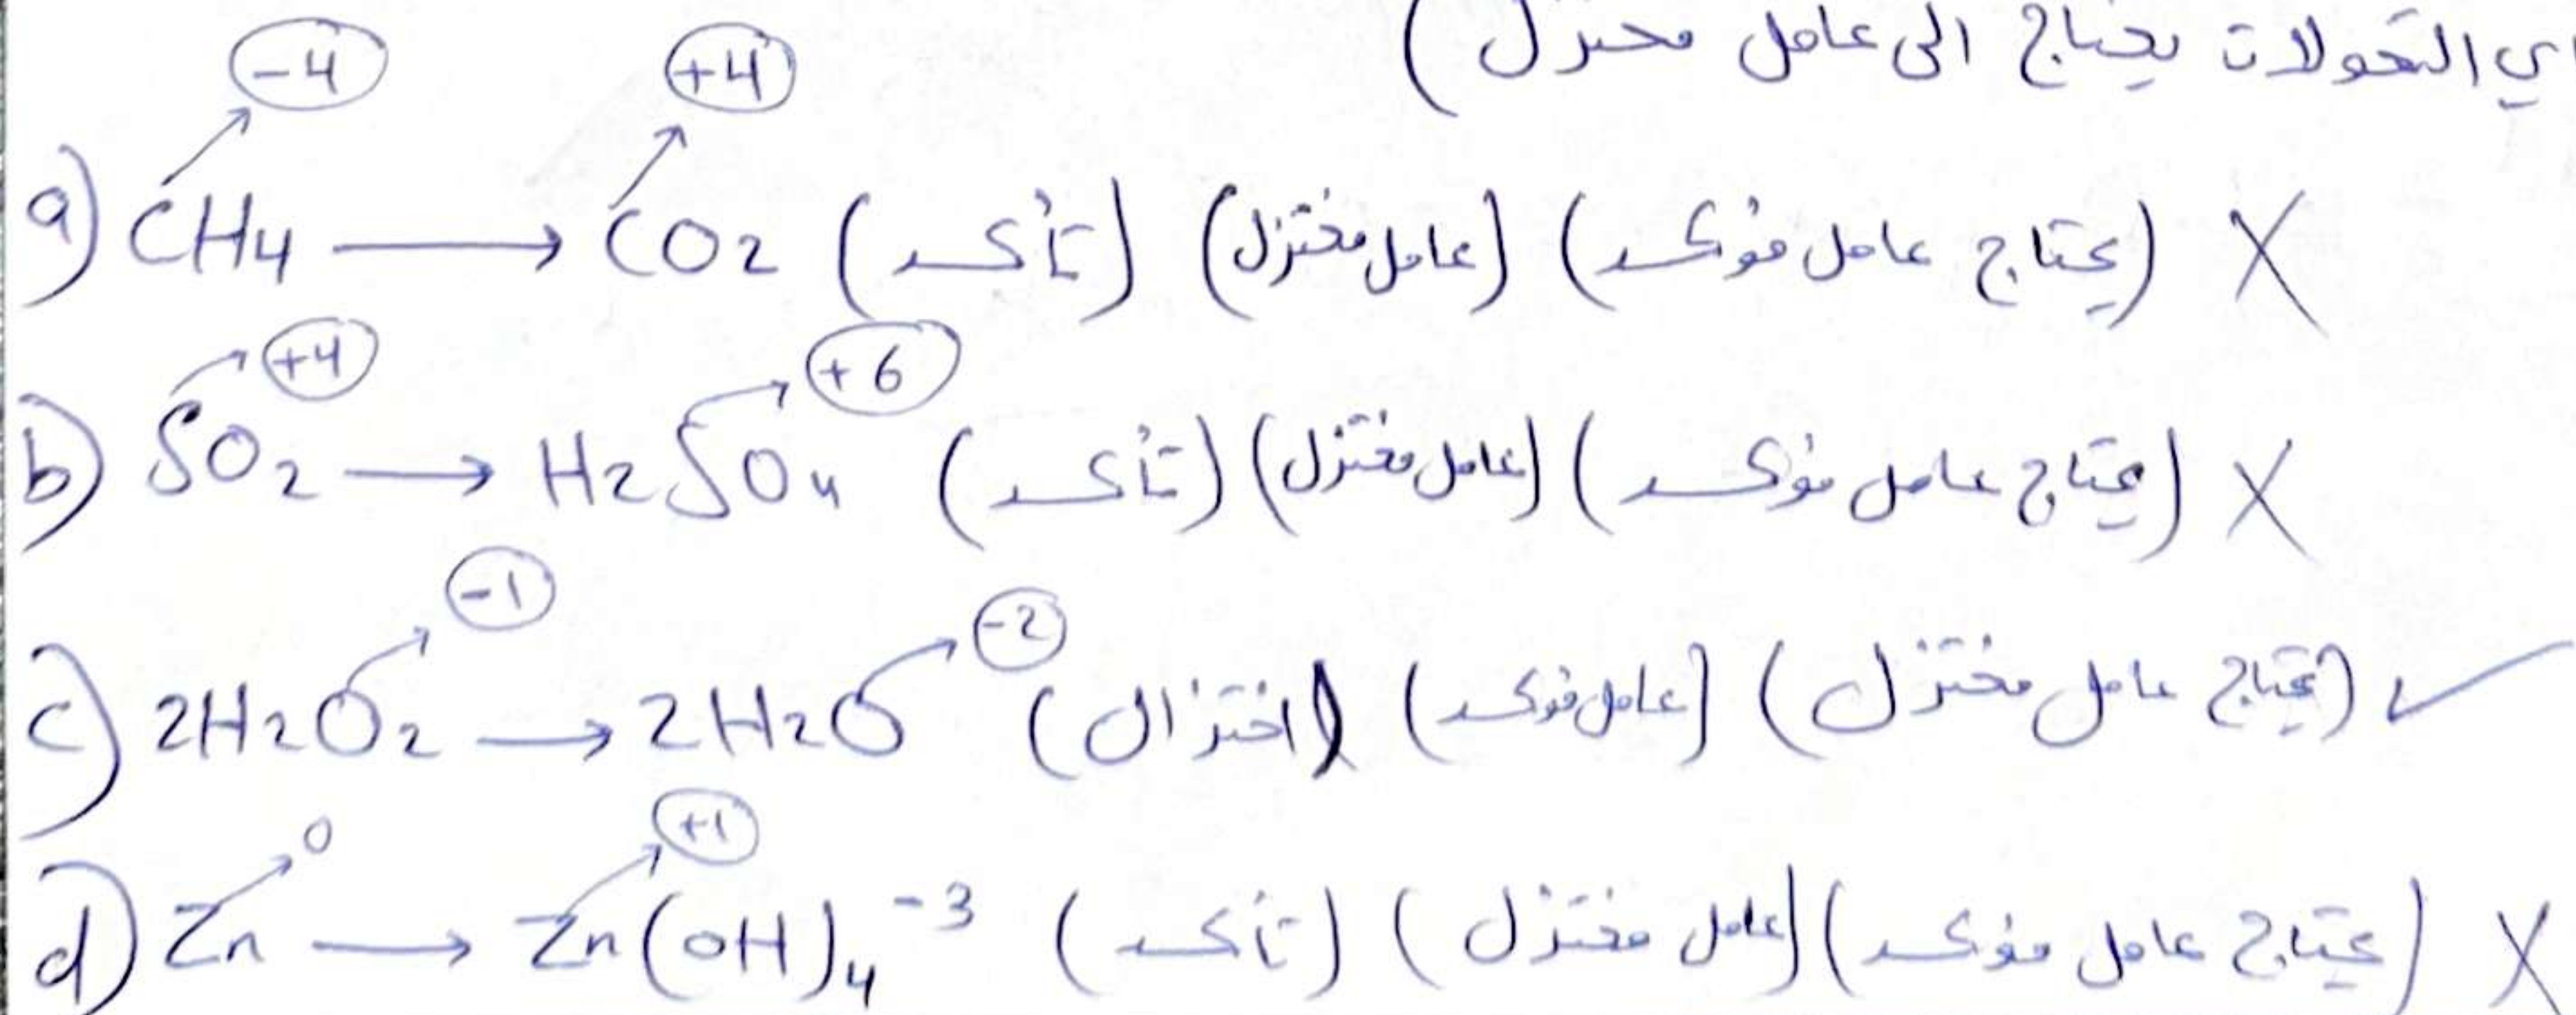 اي التحولات يحتاج الى عامل مختزل )
-4 +4
a) CH4 → CO2 (تأكسد) (عامل مختزل) (يحتاج عامل مؤكسد) X
+4 +6
b) SO2 → H2SO4 (تأكسد) (عامل مختزل) (يحتاج عامل مؤكسد) X
-1 -2
c) 2H2O2 → 2H2O (اختزال) (عامل مؤكسد) (يحتاج عامل مختزل) ✓
0 +1
d) Zn → Zn(OH)4 -3 (تأكسد) (عامل مختزل) (يحتاج عامل مؤكسد) X